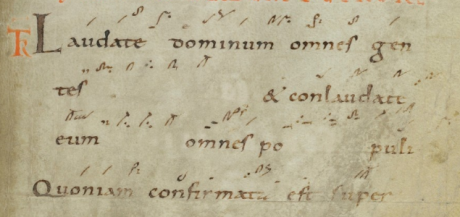 TR Laudate dominum omnes gen
tes & conlaudate
eum omnes po puli
Quoniam confirmata est super